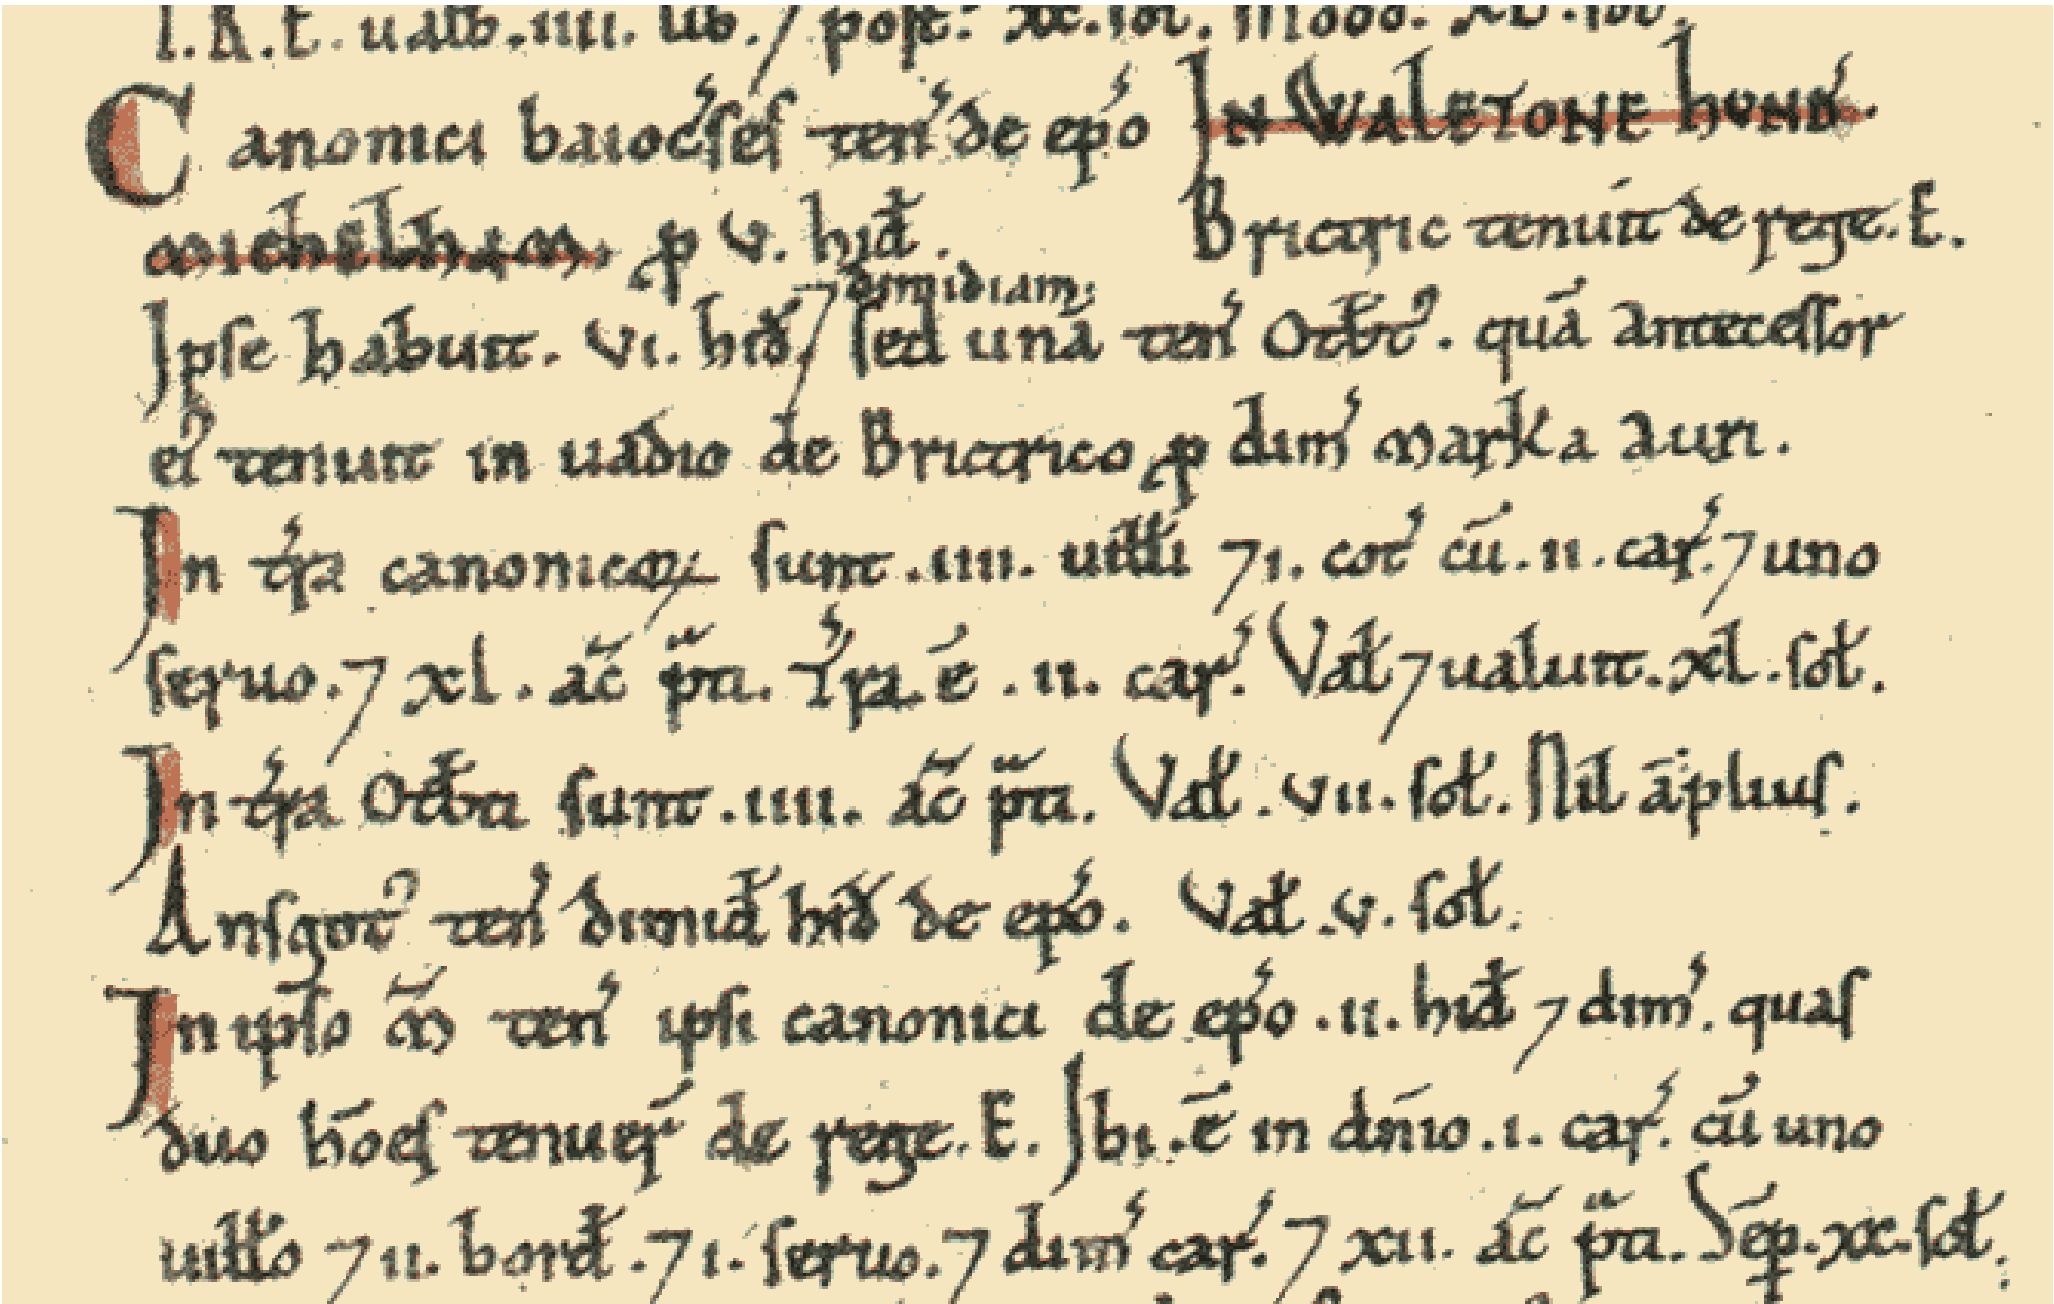 T.R.E. ualb̄.IIII. lib̄. ⁊ post'. xx. sol. Modo. xl. sol.
Canonici baioc̄ses ten' de ep̄o IN WALETONE hVND'.
MICHELHAM. ꝓ v. hid̄. Brictric tenuit de rege.E.
⁊ dimidiam.
Ipse habuit. vi. hid̄. sed unā ten' Otb̄t'. quā antecessor
ei' tenuit in uadio de Brictrico ꝓ dim' Marka auri.
In tr̄a canonicoꝝ sunt .IIII. uilli ⁊ I. cot' cū .II. car'. ⁊ uno
seruo. ⁊ xl. ac̄ p̄ti. Tr̄a .ē. II. car'. Val̄ ⁊ ualuit. xl. sol̄.
In tr̄a Otb̄ti sunt .IIII. ac̄ p̄ti. Val̄. VII. sol̄. Nil āplius.
Ansgot' ten' dimid̄ hid̄ de ep̄o. Val̄. v. sol̄.
In ip̄so M̄ ten' ipsi canonici de ep̄o .II. hid̄ ⁊ dim'. quas
duo hōes tenuer̄ de rege.E. Ibi .ē in dn̄io .I. car'. cū uno
uill̄o ⁊ II. bord̄. ⁊ I. seruo. ⁊ dim' car'. ⁊ XII. ac̄ p̄ti. Sēp. xx. sol̄.